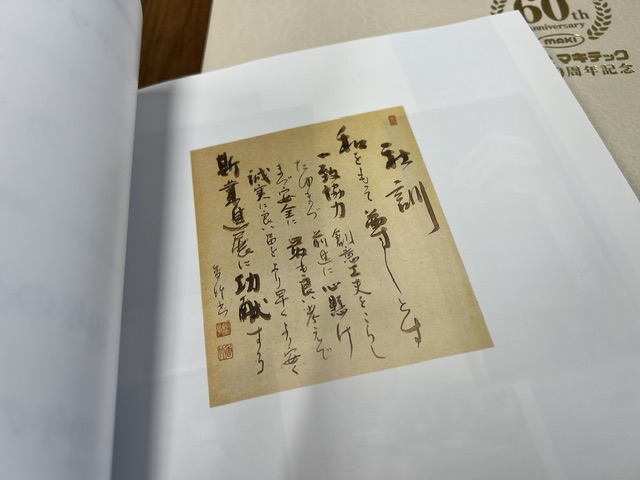 60th
Anniversary
maki
マキテック
周年記念
社訓
和をもって尊しとす
一致協力 創意工夫をこらし
たゆまず 前進に心懸け
まず安全に 最も良い考えで
誠実に良い品をより早くより安く
斯業進展に功献する